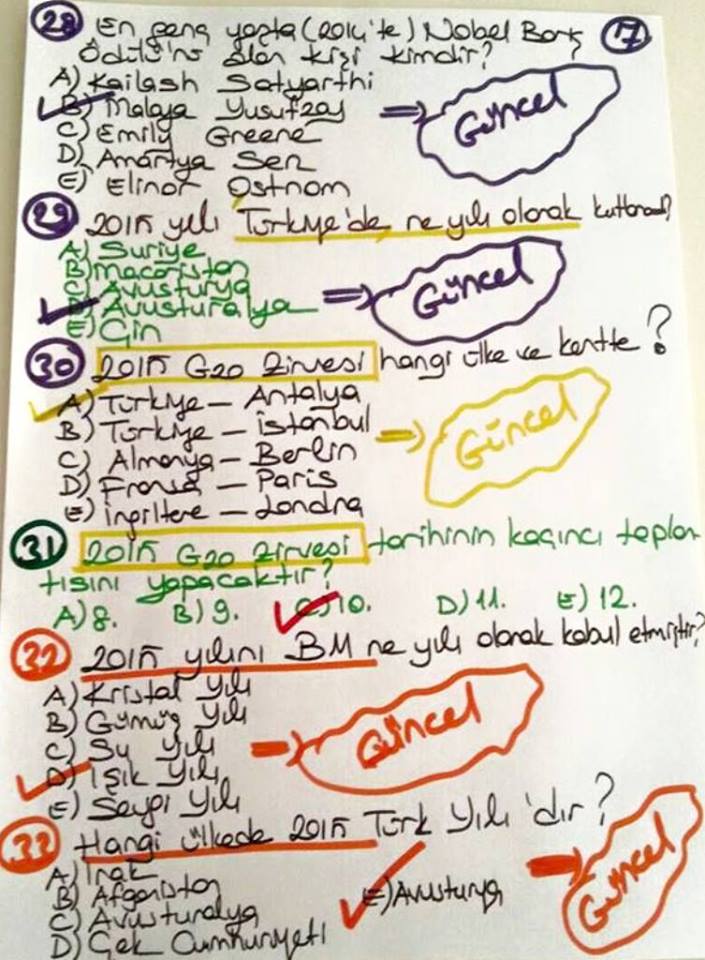 28 En genç yaşta (2014'te) Nobel Barış 17
Ödülü'nü alan kişi kimdir?
A) Kailash Satyarthi
B) Malala Yusufzay ⇒ Güncel
C) Emily Greene
D) Amartya Sen
E) Elinor Ostrom
29 2015 yılı Türkiye'de ne yılı olarak kutlandı?
A) Suriye
B) Macaristan
C) Avusturya
D) Avusturalya ⇒ Güncel
E) Çin
30 2015 G20 Zirvesi hangi ülke ve kentte?
A) Türkiye - Antalya
B) Türkiye - İstanbul ⇒ Güncel
C) Almanya - Berlin
D) Fransa - Paris
E) İngiltere - Londra
31 2015 G20 Zirvesi tarihinin kaçıncı toplan
tısını yapacaktır?
A) 8. B) 9. C) 10. D) 11. E) 12.
32 2015 yılını BM ne yılı olarak kabul etmiştir?
A) Kristal Yılı
B) Gümüş Yılı
C) Su Yılı ⇒ Güncel
D) Işık Yılı
E) Sevgi Yılı
33 Hangi ülkede 2015 Türk Yılı'dır?
A) Irak
B) Afganistan E) Avusturya ⇒ Güncel
C) Avusturalya
D) Çek Cumhuriyeti